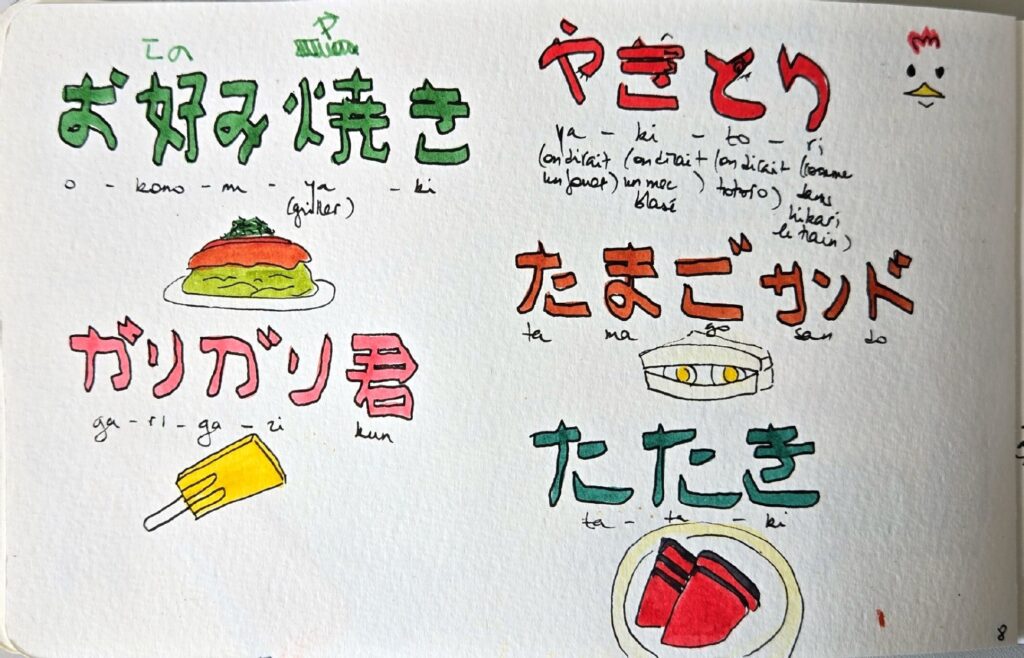 この
お好み焼き
o - kono - mi - ya - ki
(griller)
ガリガリ君
ga - ri - ga - ri kun
やきとり
ya - ki - to - ri
(on dirait (on dirait (on dirait (comme
un jouet) un mec ) totoro) dans
blasé hikari,
le train)
たまごサンド
ta ma go san do
たたき
ta - ta - ki
8